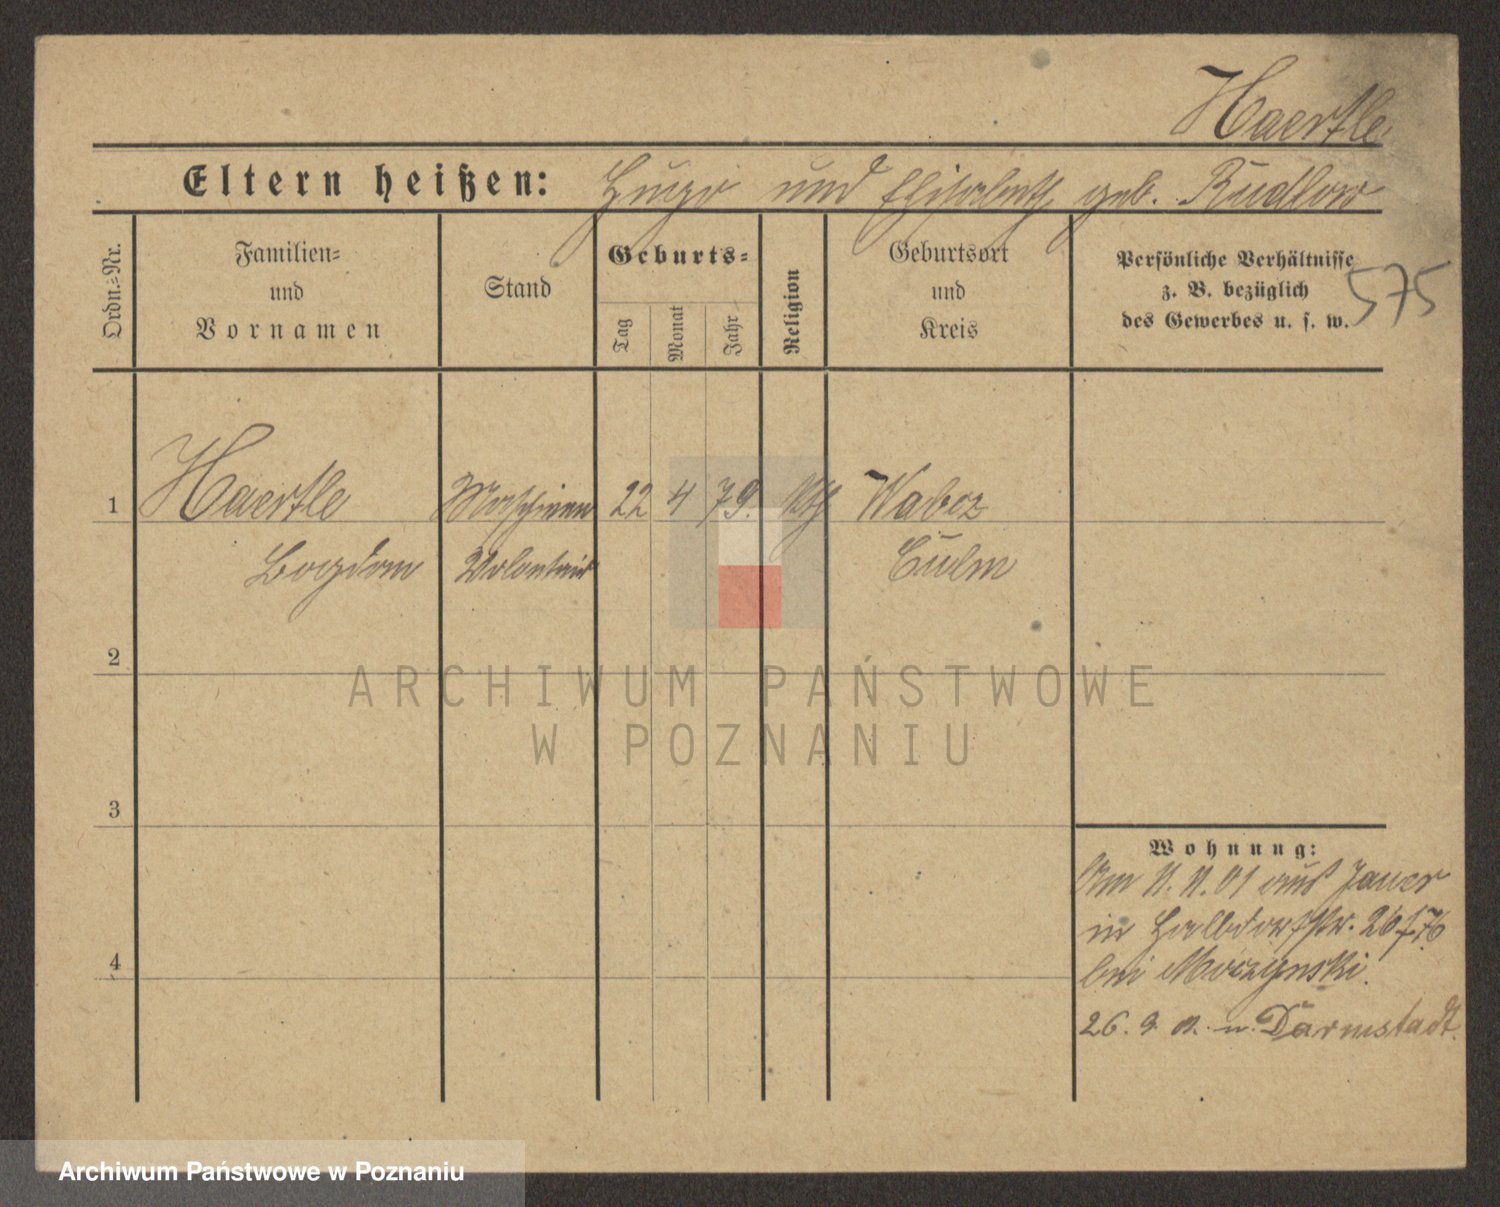 Haertle
Eltern heißen: Hugo und Elisabeth geb. Rudlow
Ordn.=Nr.
Familien=
und
Vornamen
Stand
Geburts=
Tag
Monat
Jahr
Religion
Geburtsort
und
Kreis
Persönliche Verhältnisse
z. B. bezüglich
des Gewerbes u. s. w.
575
1 Haertle Maschinen 22 4 79. kth Wabcz
Bogdan Volontair Culm
2
ARCHIWUM PAŃSTWOWE
W POZNANIU
3
Wohnung:
Am 11.11.01 aus Jauer
in Halbdorfstr. 26
4
bei Moczynski.
26. 9. n. Darmstadt.
Archiwum Państwowe w Poznaniu